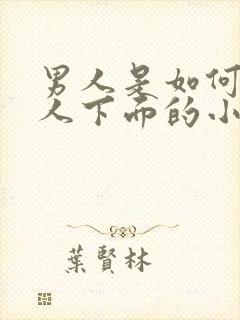 男人是如何
人下面的小
葉賢林